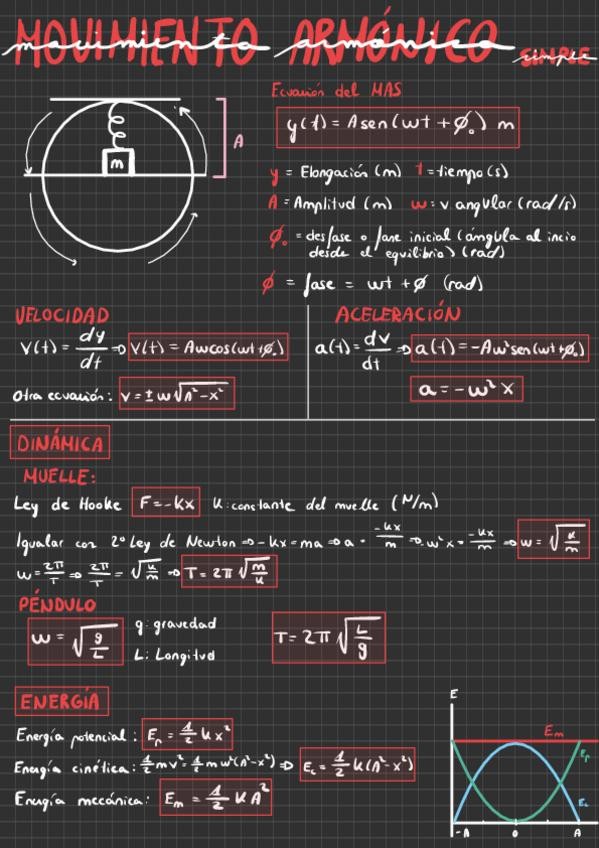 MOVIMIENTO ARMÓNICO SIMPLE
movimiento armónico simple
Ecuación del MAS
y(t) = A sen(wt + φ₀) m
m
A
y = Elongación (m) t = tiempo (s)
A = Amplitud (m) w = v angular (rad/s)
φ₀ = desfase o fase inicial (ángulo al incio
desde el equilibrio) (rad)
φ = fase = wt + φ (rad)
VELOCIDAD
v(t) = dy/dt ⇒ v(t) = Awcos(wt+φ₀)
Otra ecuación: v = ± w√(A²-x²)
ACELERACIÓN
a(t) = dv/dt ⇒ a(t) = -Aw²sen(wt+φ₀)
a = -w² x
DINÁMICA
MUELLE:
Ley de Hooke F = -kx K: constante del muelle (N/m)
Igualar con 2ª Ley de Newton ⇒ -kx = ma ⇒ a = -kx/m ⇒ -w²x = -kx/m ⇒ w = √(k/m)
w = 2π/T ⇒ 2π/T = √(k/m) ⇒ T = 2π √(m/k)
PÉNDULO
w = √(g/L) g: gravedad
L: Longitud
T = 2π √(L/g)
ENERGÍA
Energía potencial: Ep = 1/2 k x²
Energía cinética: 1/2 mv² = 1/2 m w²(A²-x²) ⇒ Ec = 1/2 k(A²-x²)
Energía mecánica: Em = 1/2 K A²
E
Em
Ep
Ec
-A 0 A